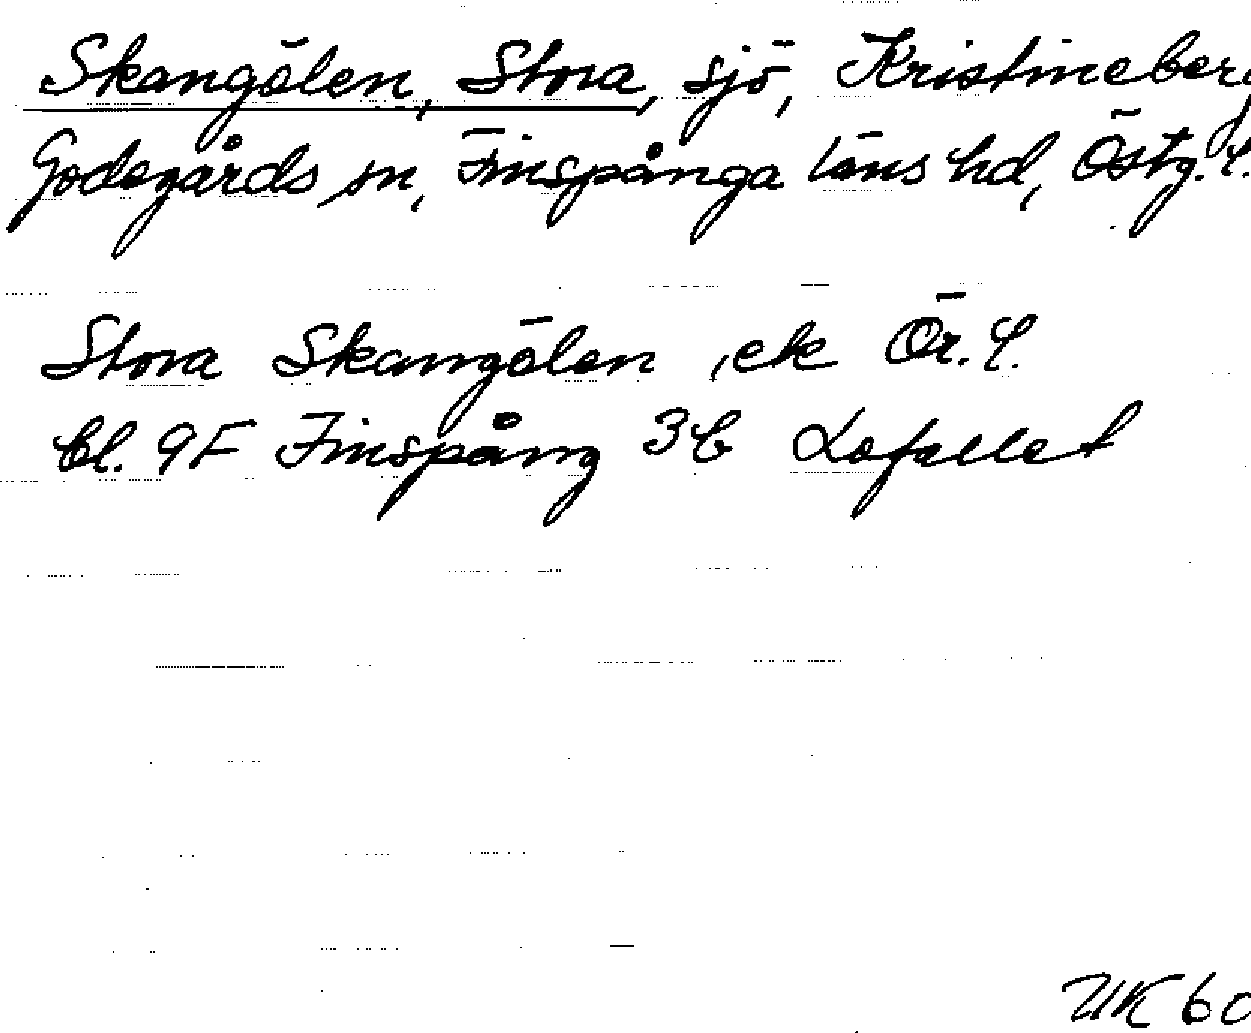 Skangölen, Stora, sjö, Kristineberg
Godegårds sn, Finspånga läns hd, Östg. l.
Stora Skangölen, ek Ör. l.
bl. 9F Finspång 3b Lofallet
UK 60